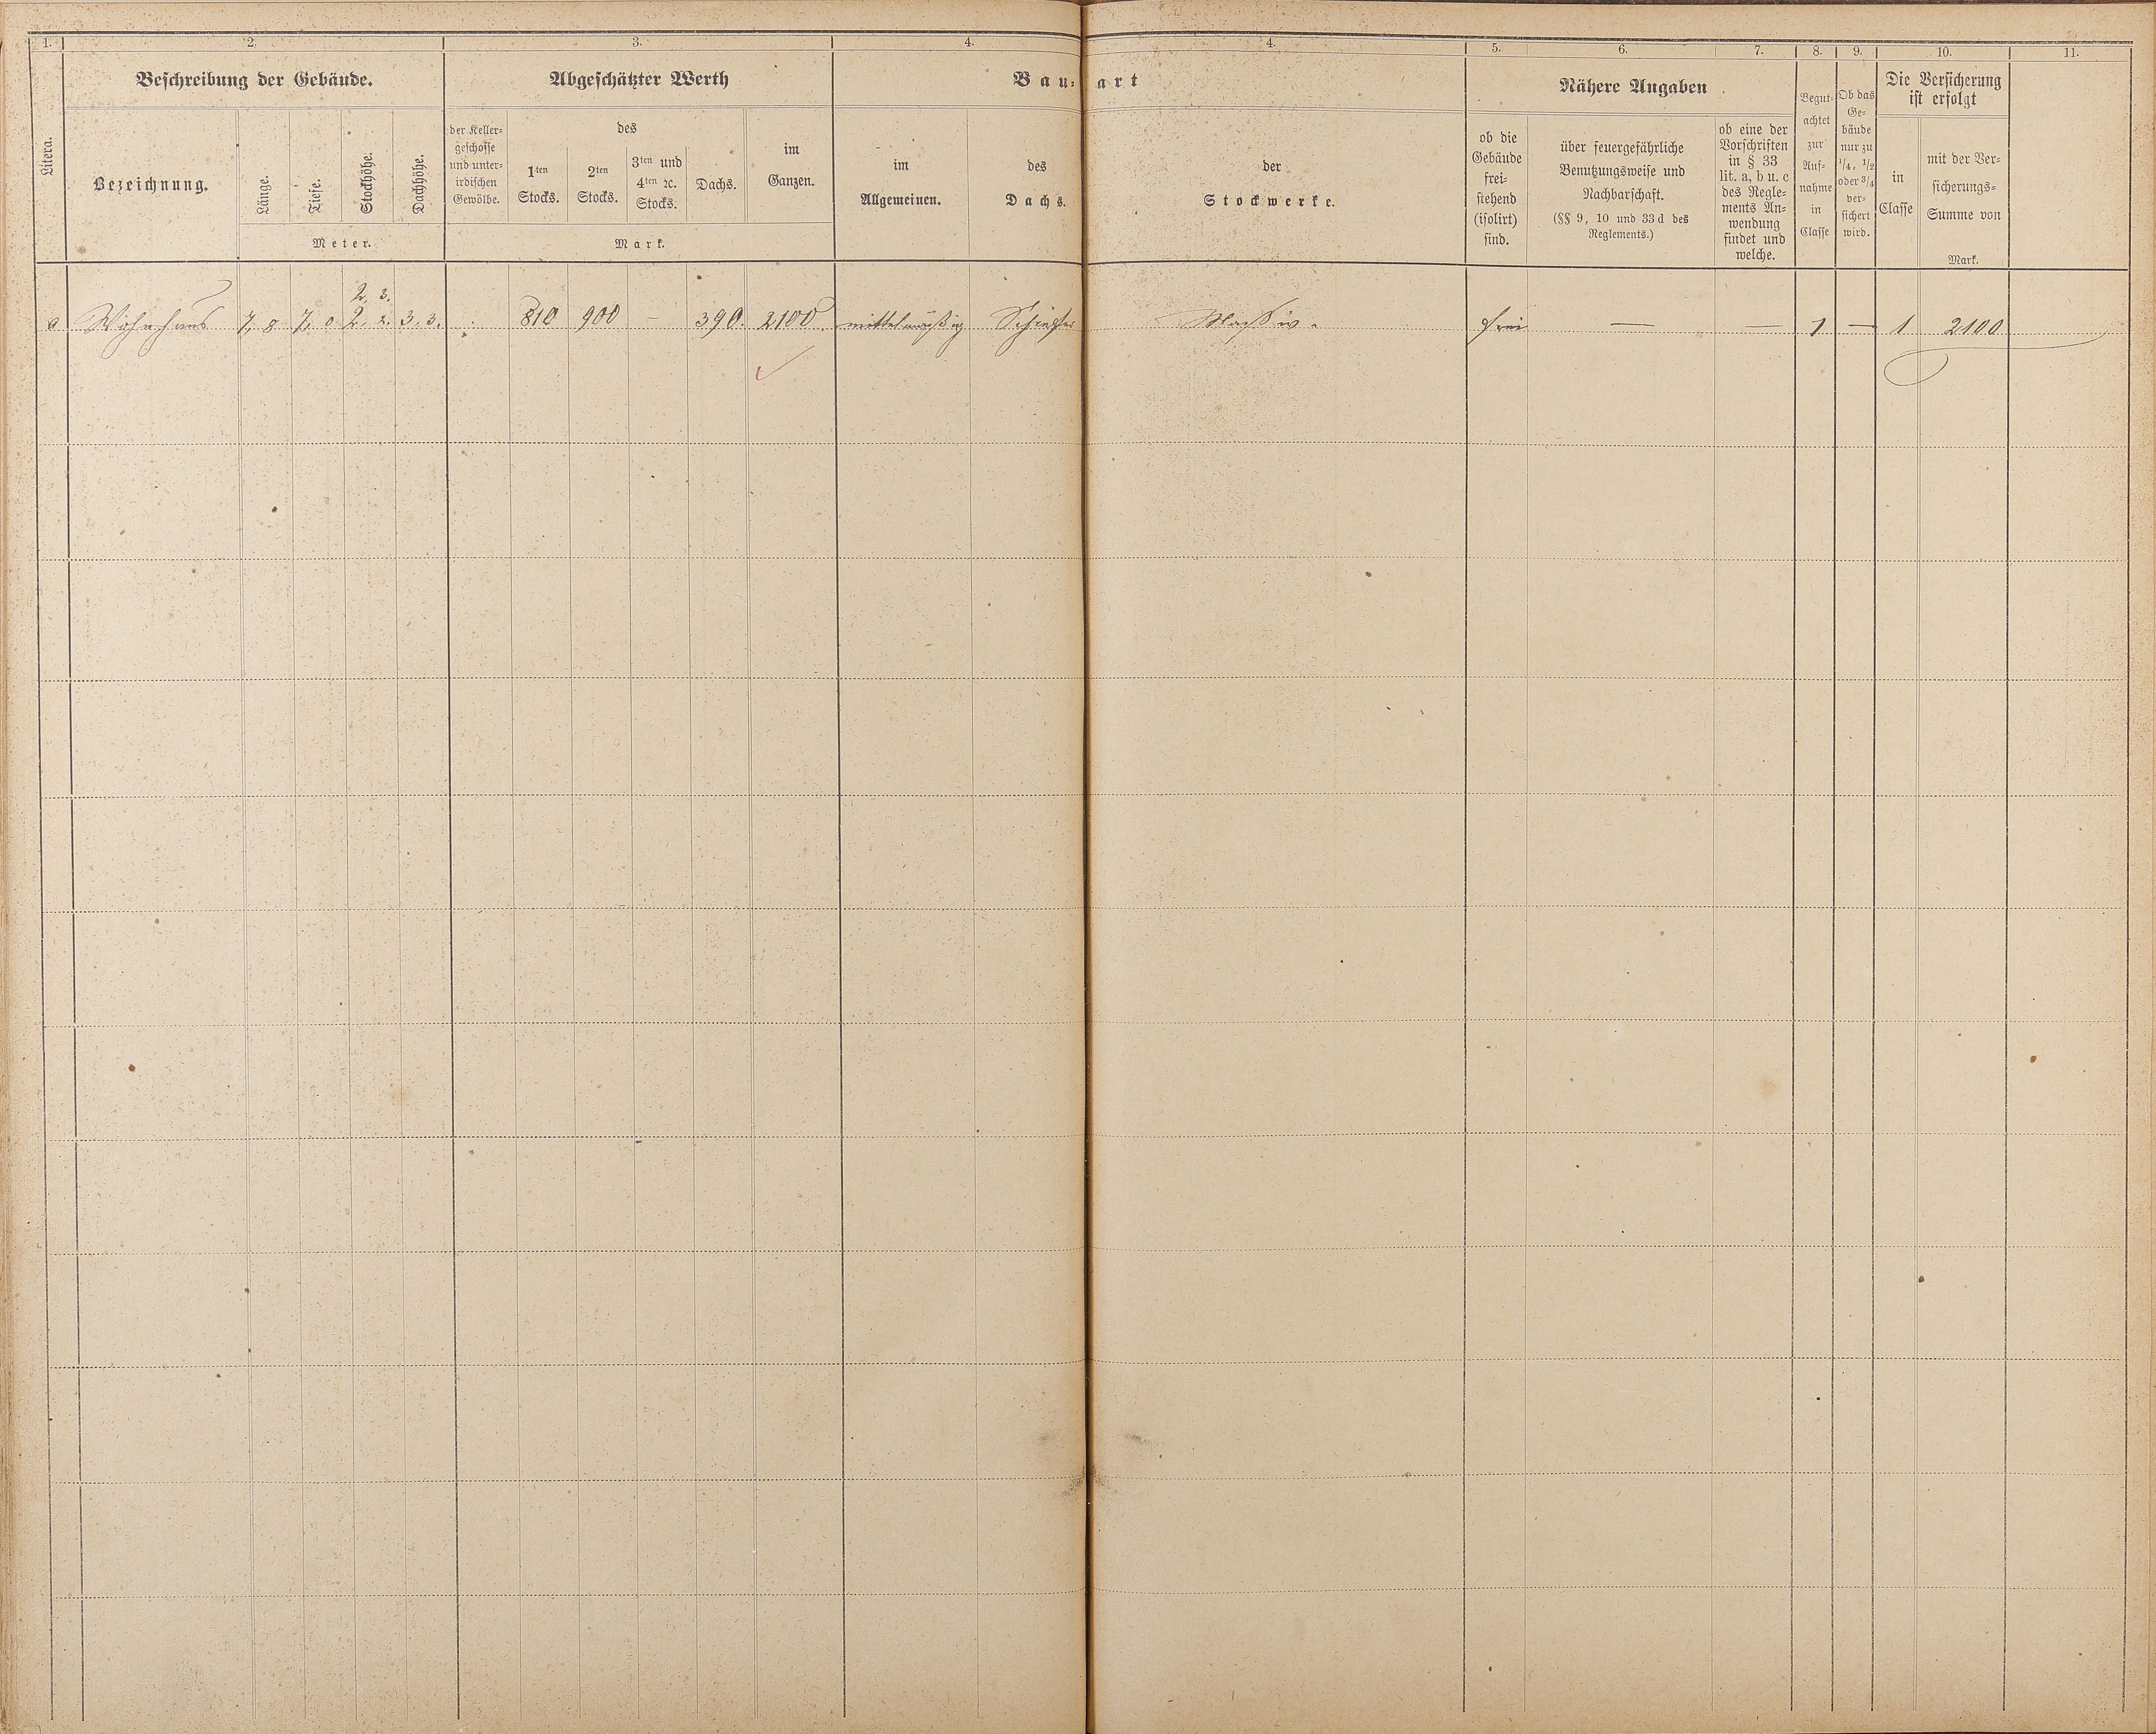 1. 2. 3. 4. 4. 5. 6. 7. 8. 9. 10. 11.
Litera.
Beschreibung der Gebäude.
Bezeichnung.
Länge.
Tiefe.
Stockhöhe.
Dachhöhe.
Meter.
Abgeschätzter Werth
der Keller-
geschosse
und unter-
irdischen
Gewölbe.
des
1ten
Stocks.
2ten
Stocks.
3ten und
4ten ꝛc.
Stocks.
Dachs.
im
Ganzen.
Mark.
Bau-art
im
Allgemeinen.
des
Dachs.
der
Stockwerke.
Nähere Angaben
ob die
Gebäude
frei-
stehend
(isolirt)
sind.
über feuergefährliche
Benutzungsweise und
Nachbarschaft.
(§§ 9, 10 und 33 d des
Reglements.)
ob eine der
Vorschriften
in § 33
lit. a, b u. c
des Regle-
ments An-
wendung
findet und
welche.
Begut-
achtet
zur
Auf-
nahme
in
Classe
Ob das
Ge-
bäude
nur zu
1/4, 1/2
oder 3/4
ver-
sichert
wird.
Die Versicherung
ist erfolgt
in
Classe
mit der Ver-
sicherungs-
Summe von
Mark.
2, 3.
a Wohnhaus 7, 8 7, 0 2, 2. 3, 3. 810 900 — 390. 2100. mittelmäßig Schiefer Massiv. frei — — 1 — 1 2100